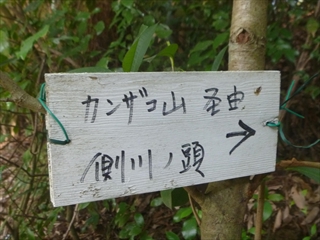 カンザコ山 経由
→
側川ノ頭